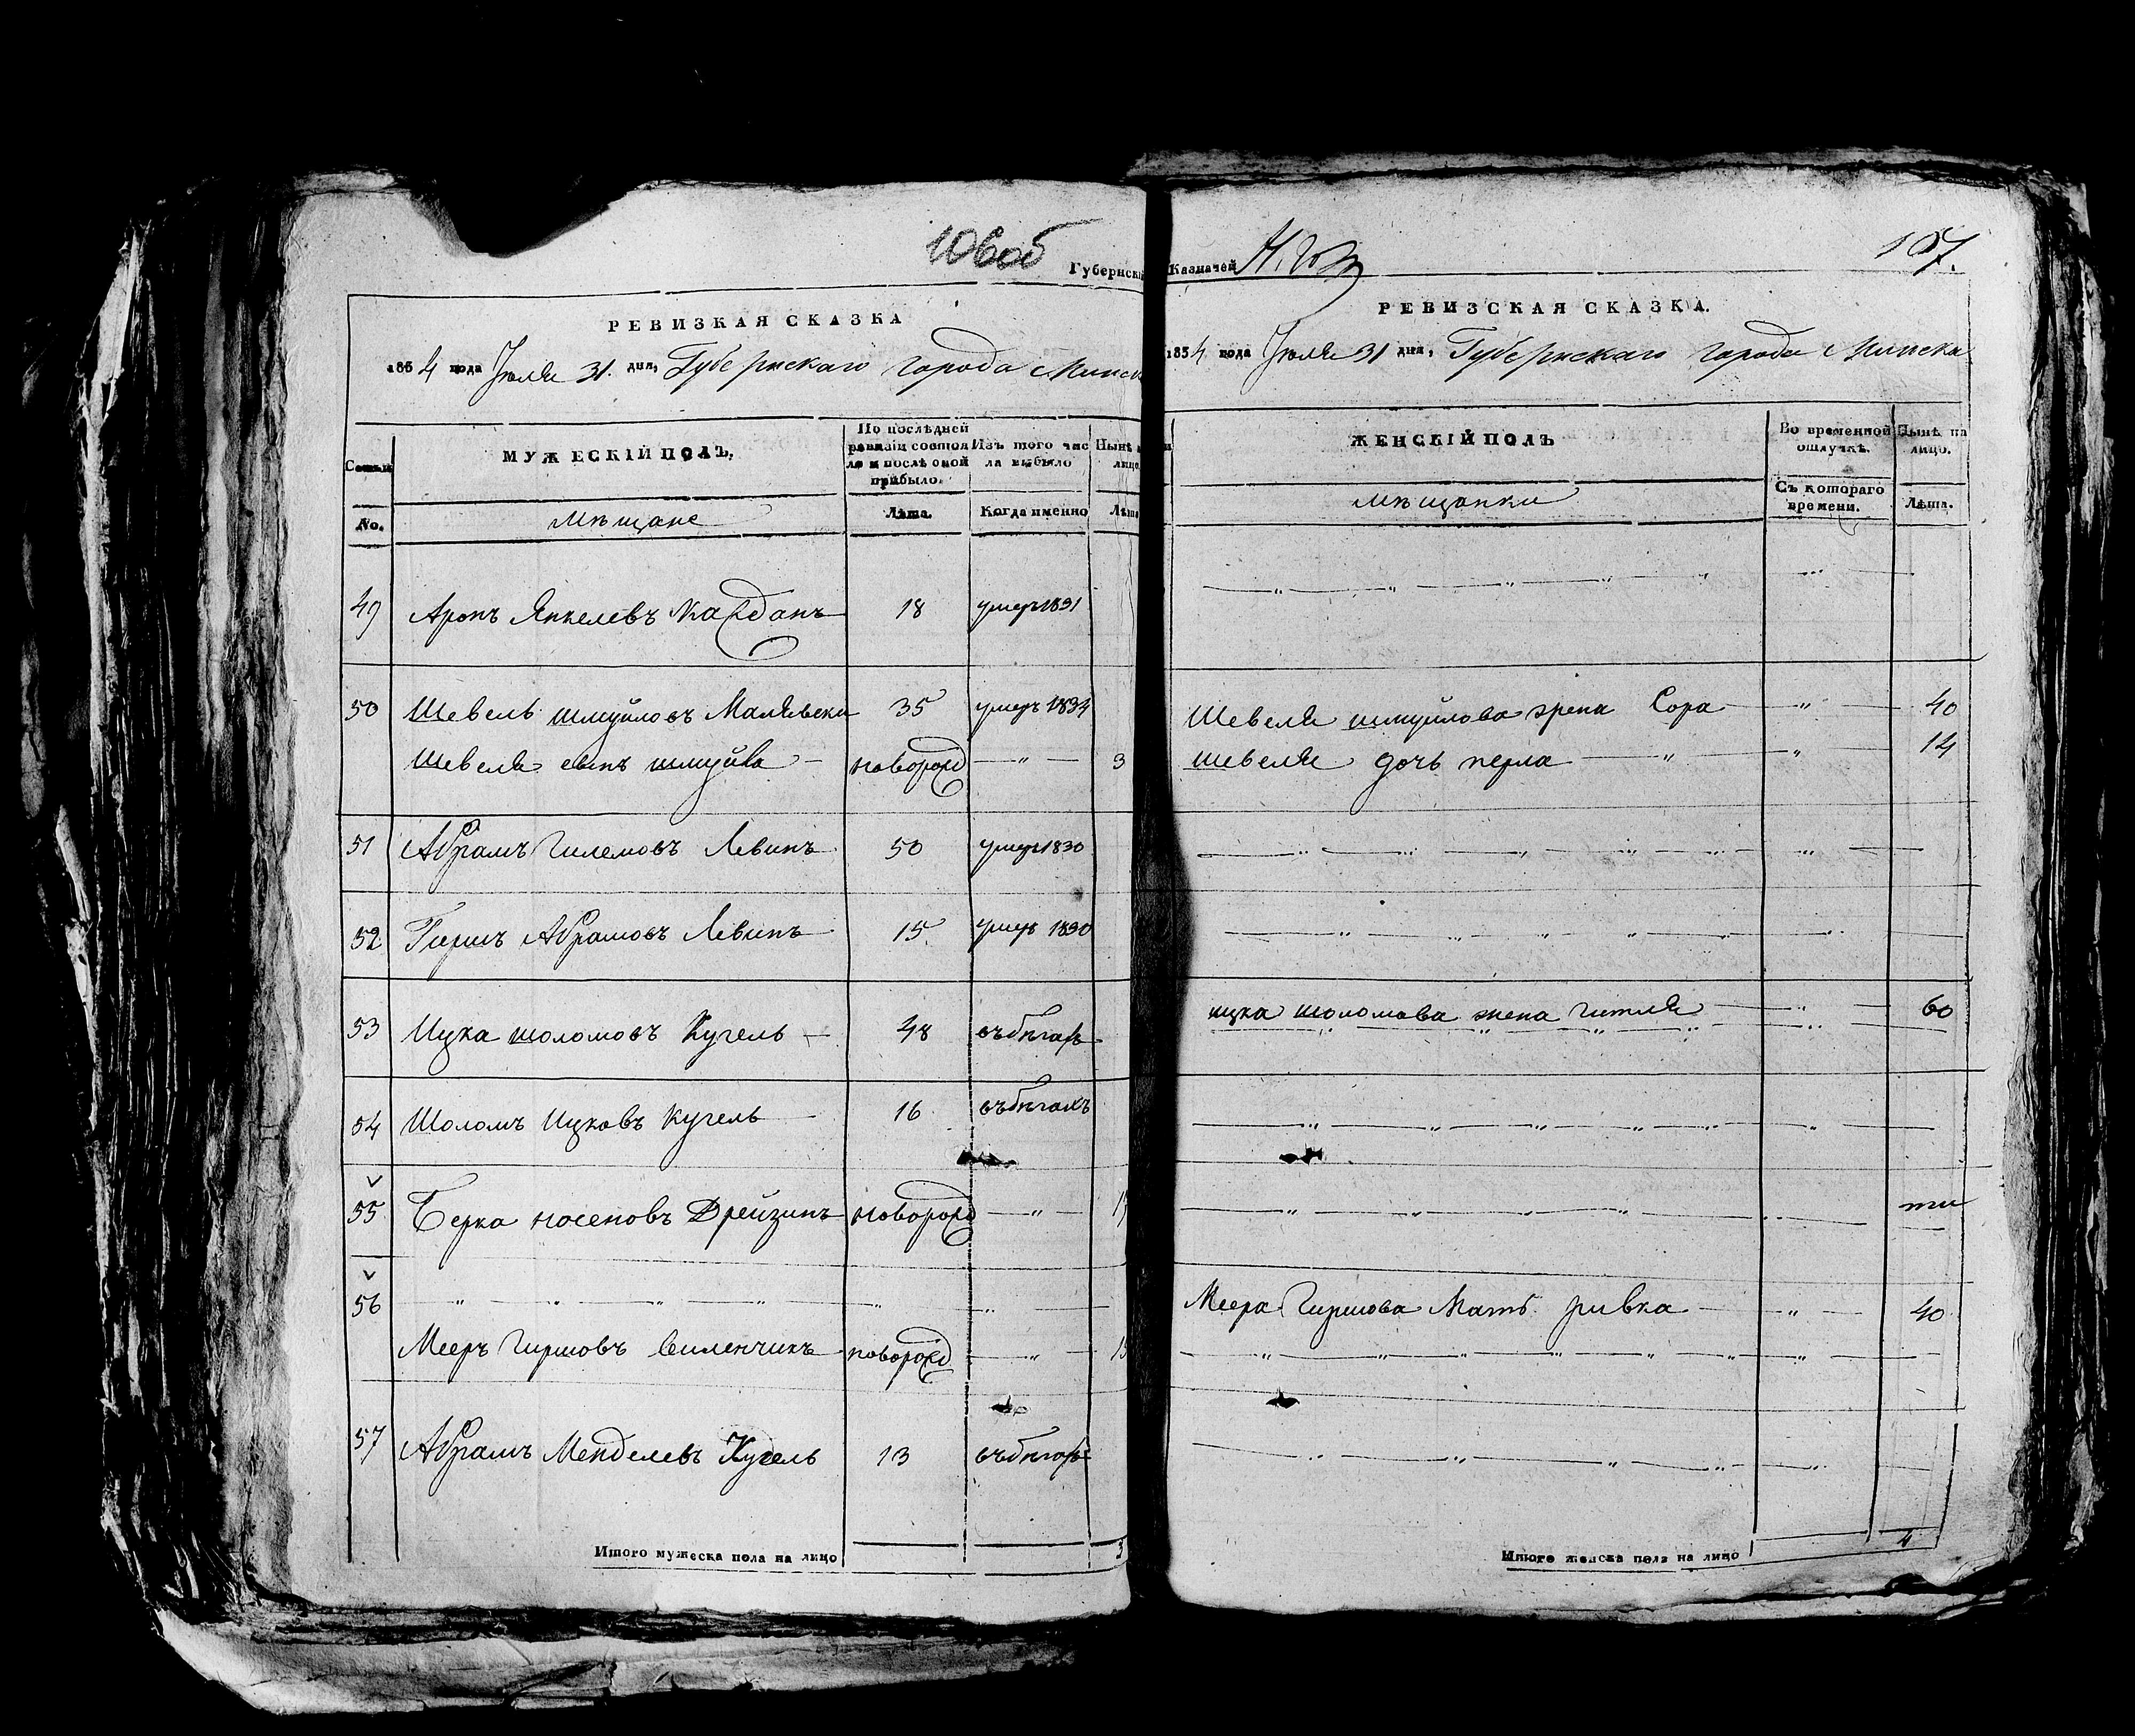 106об
Губернскі
РЕВИЗКАЯ СКАЗКА
1834 года Іюля 31. дня, Губернскаго города Минск
Семьи
МУЖЕСКІЙ ПОЛЪ.
По послѣдней ревизіи состояло и послѣ оной прибыло.
Изъ того числа выбыло
Нынѣ лицо
No.
Мѣщане
Лѣта.
Когда именно
Лѣта
49 Аронъ Янкелевъ Кайданъ 18 умеръ 1831
50 Шевель шмуйловъ Малявски 35 умеръ 1834
Шевеля сынъ шмуйва новорожд — " — 3
51 Абрамъ Гилемовъ Левинъ 50 умеръ 1830
52 Гиршъ Абрамовъ Левинъ 15 умеръ 1830
53 Ицка шоломовъ Кугель — 48 въ бѣгахъ
54 Шоломъ Ицковъ Кугель 16 въ бѣгахъ
55 Берка носеновъ Дрейзинъ новорожд — " —
56 " " " " " "
Мееръ Гиршовъ Виленчикъ новорожд — " —
57 Абрамъ Менделевъ Кугель 13 въ бѣгахъ
Итого мужеска пола на лицо 3
Казначей
107.
РЕВИЗСКАЯ СКАЗКА.
1834 года Іюля 31 дня, Губернскаго города Минска
ЖЕНСКІЙ ПОЛЪ
Во временной отлучкѣ.
Нынѣ на лицо.
Мѣщанки
Съ котораго времени.
Лѣта.
Шевеля шмуйлова жена Сора — " — 40
шевеля дочь перла — " — " — 14
ицка шоломова жена Гитля — " — 60
Меера Гиршова Мать ривка — " — 40
Итого женска пола на лицо 4